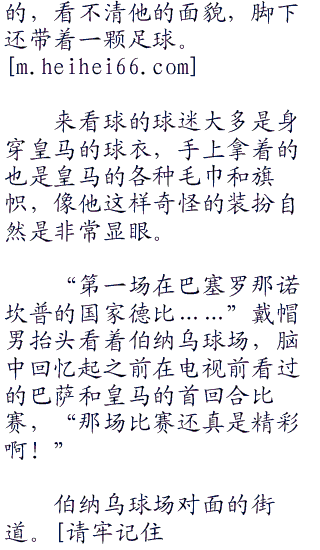 的，看不清他的面貌，脚下
还带着一颗足球。
[m.heihei66.com]
来看球的球迷大多是身
穿皇马的球衣，手上拿着的
也是皇马的各种毛巾和旗
帜，像他这样奇怪的装扮自
然是非常显眼。
“第一场在巴塞罗那诺
坎普的国家德比……”戴帽
男抬头看着伯纳乌球场，脑
中回忆起之前在电视前看过
的巴萨和皇马的首回合比
赛，“那场比赛还真是精彩
啊！”
伯纳乌球场对面的街
道。[请牢记住